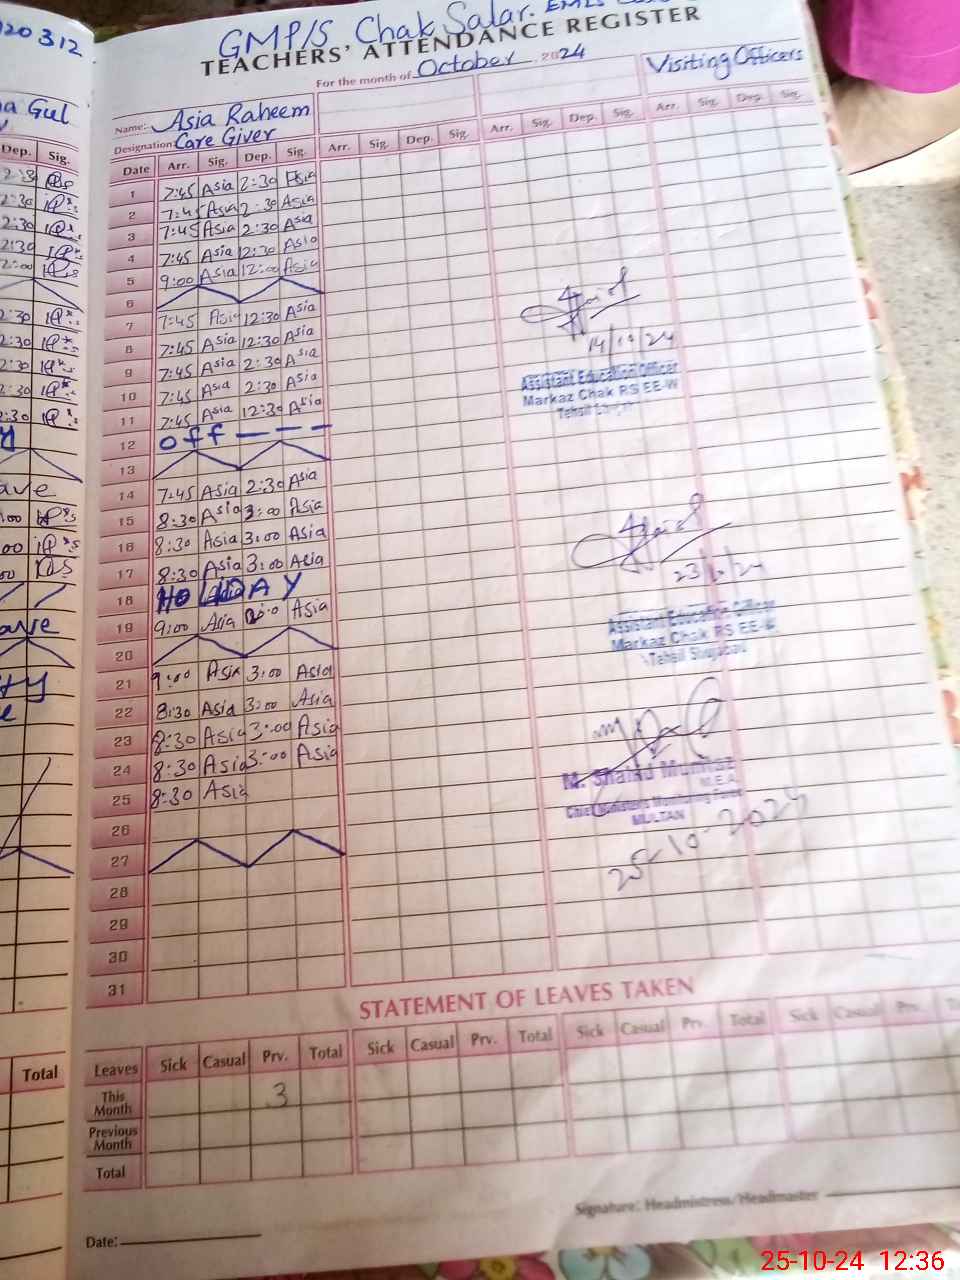 20312
GMP/S Chak Salar. EMIS
TEACHERS' ATTENDANCE REGISTER
For the month of October 2024
Visiting Officers
Name:- Asia Raheem
Designation Care Giver
Date Arr. Sig. Dep. Sig. Arr. Sig. Dep. Sig. Arr. Sig. Dep. Sig. Arr. Sig. Dep. Sig.
1 7:45 Asia 2:30 Asia
2 7:45 Asia 2:30 Asia
3 7:45 Asia 2:30 Asia
4 7:45 Asia 12:30 Asia
5 9:00 Asia 12:00 Asia
6
7 7:45 Asia 12:30 Asia
8 7:45 Asia 12:30 Asia
9 7:45 Asia 2:30 Asia
10 7:45 Asia 2:30 Asia
11 7:45 Asia 12:30 Asia
12 off — — —
13
14 7:45 Asia 2:30 Asia
15 8:30 Asia 3:00 Asia
16 8:30 Asia 3:00 Asia
17 8:30 Asia 3:00 Asia
18 HOLIDAY
19 9:00 Asia Asia
20
21 9:00 Asia 3:00 Asia
22 8:30 Asia 3:00 Asia
23 8:30 Asia 3:00 Asia
24 8:30 Asia 3:00 Asia
25 8:30 Asia
26
27
28
29
30
31
14/10/24
Assistant Education Officer
Markaz Chak RS EE-W
Tehsil
23/10/24
Assistant Education Officer
Markaz Chak RS EE-W
Tehsil Shujabad
M. Mumtaz
M.E.A
Chief Ministers Monitoring Force
MULTAN
25-10-2024
STATEMENT OF LEAVES TAKEN
Leaves Sick Casual Prv. Total Sick Casual Prv. Total Sick Casual Prv. Total Sick Casual Prv.
This Month 3
Previous Month
Total
Signature: Headmistress/Headmaster
Date:
Gul
Dep. Sig.
2:30
2:30
2:30
2:30
2:30
2:30
2:30
Total
25-10-24 12:36